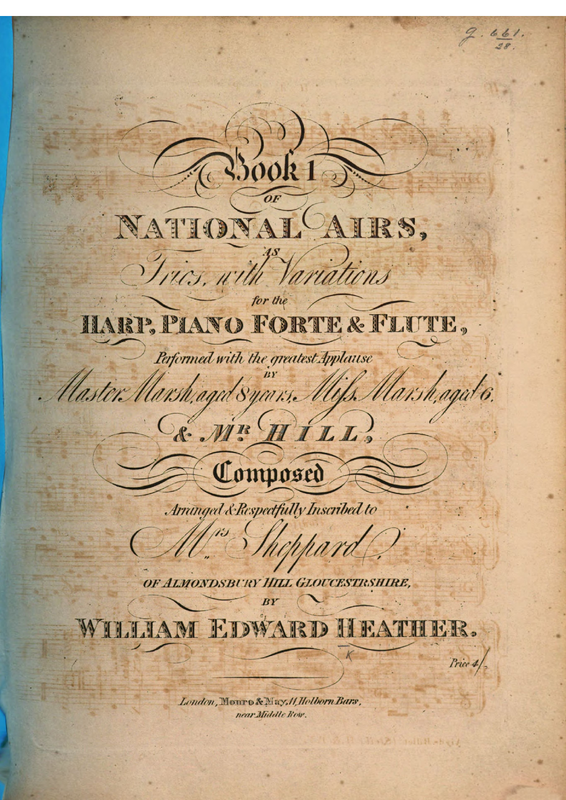 g. 661.
28.
Book 1
OF
NATIONAL AIRS,
AS
Trios, with Variations
for the
HARP, PIANO FORTE & FLUTE,
Performed with the greatest Applause
BY
Master Marsh, aged 8 years, Miss Marsh, aged 6.
& MR HILL,
Composed
Arranged & Respectfully Inscribed to
Mrs Sheppard,
OF ALMONDSBURY HILL GLOUCESTRSHIRE,
BY
WILLIAM EDWARD HEATHER.
Price 4/
London, Monro & May, 11, Holborn Bars,
near Middle Row.